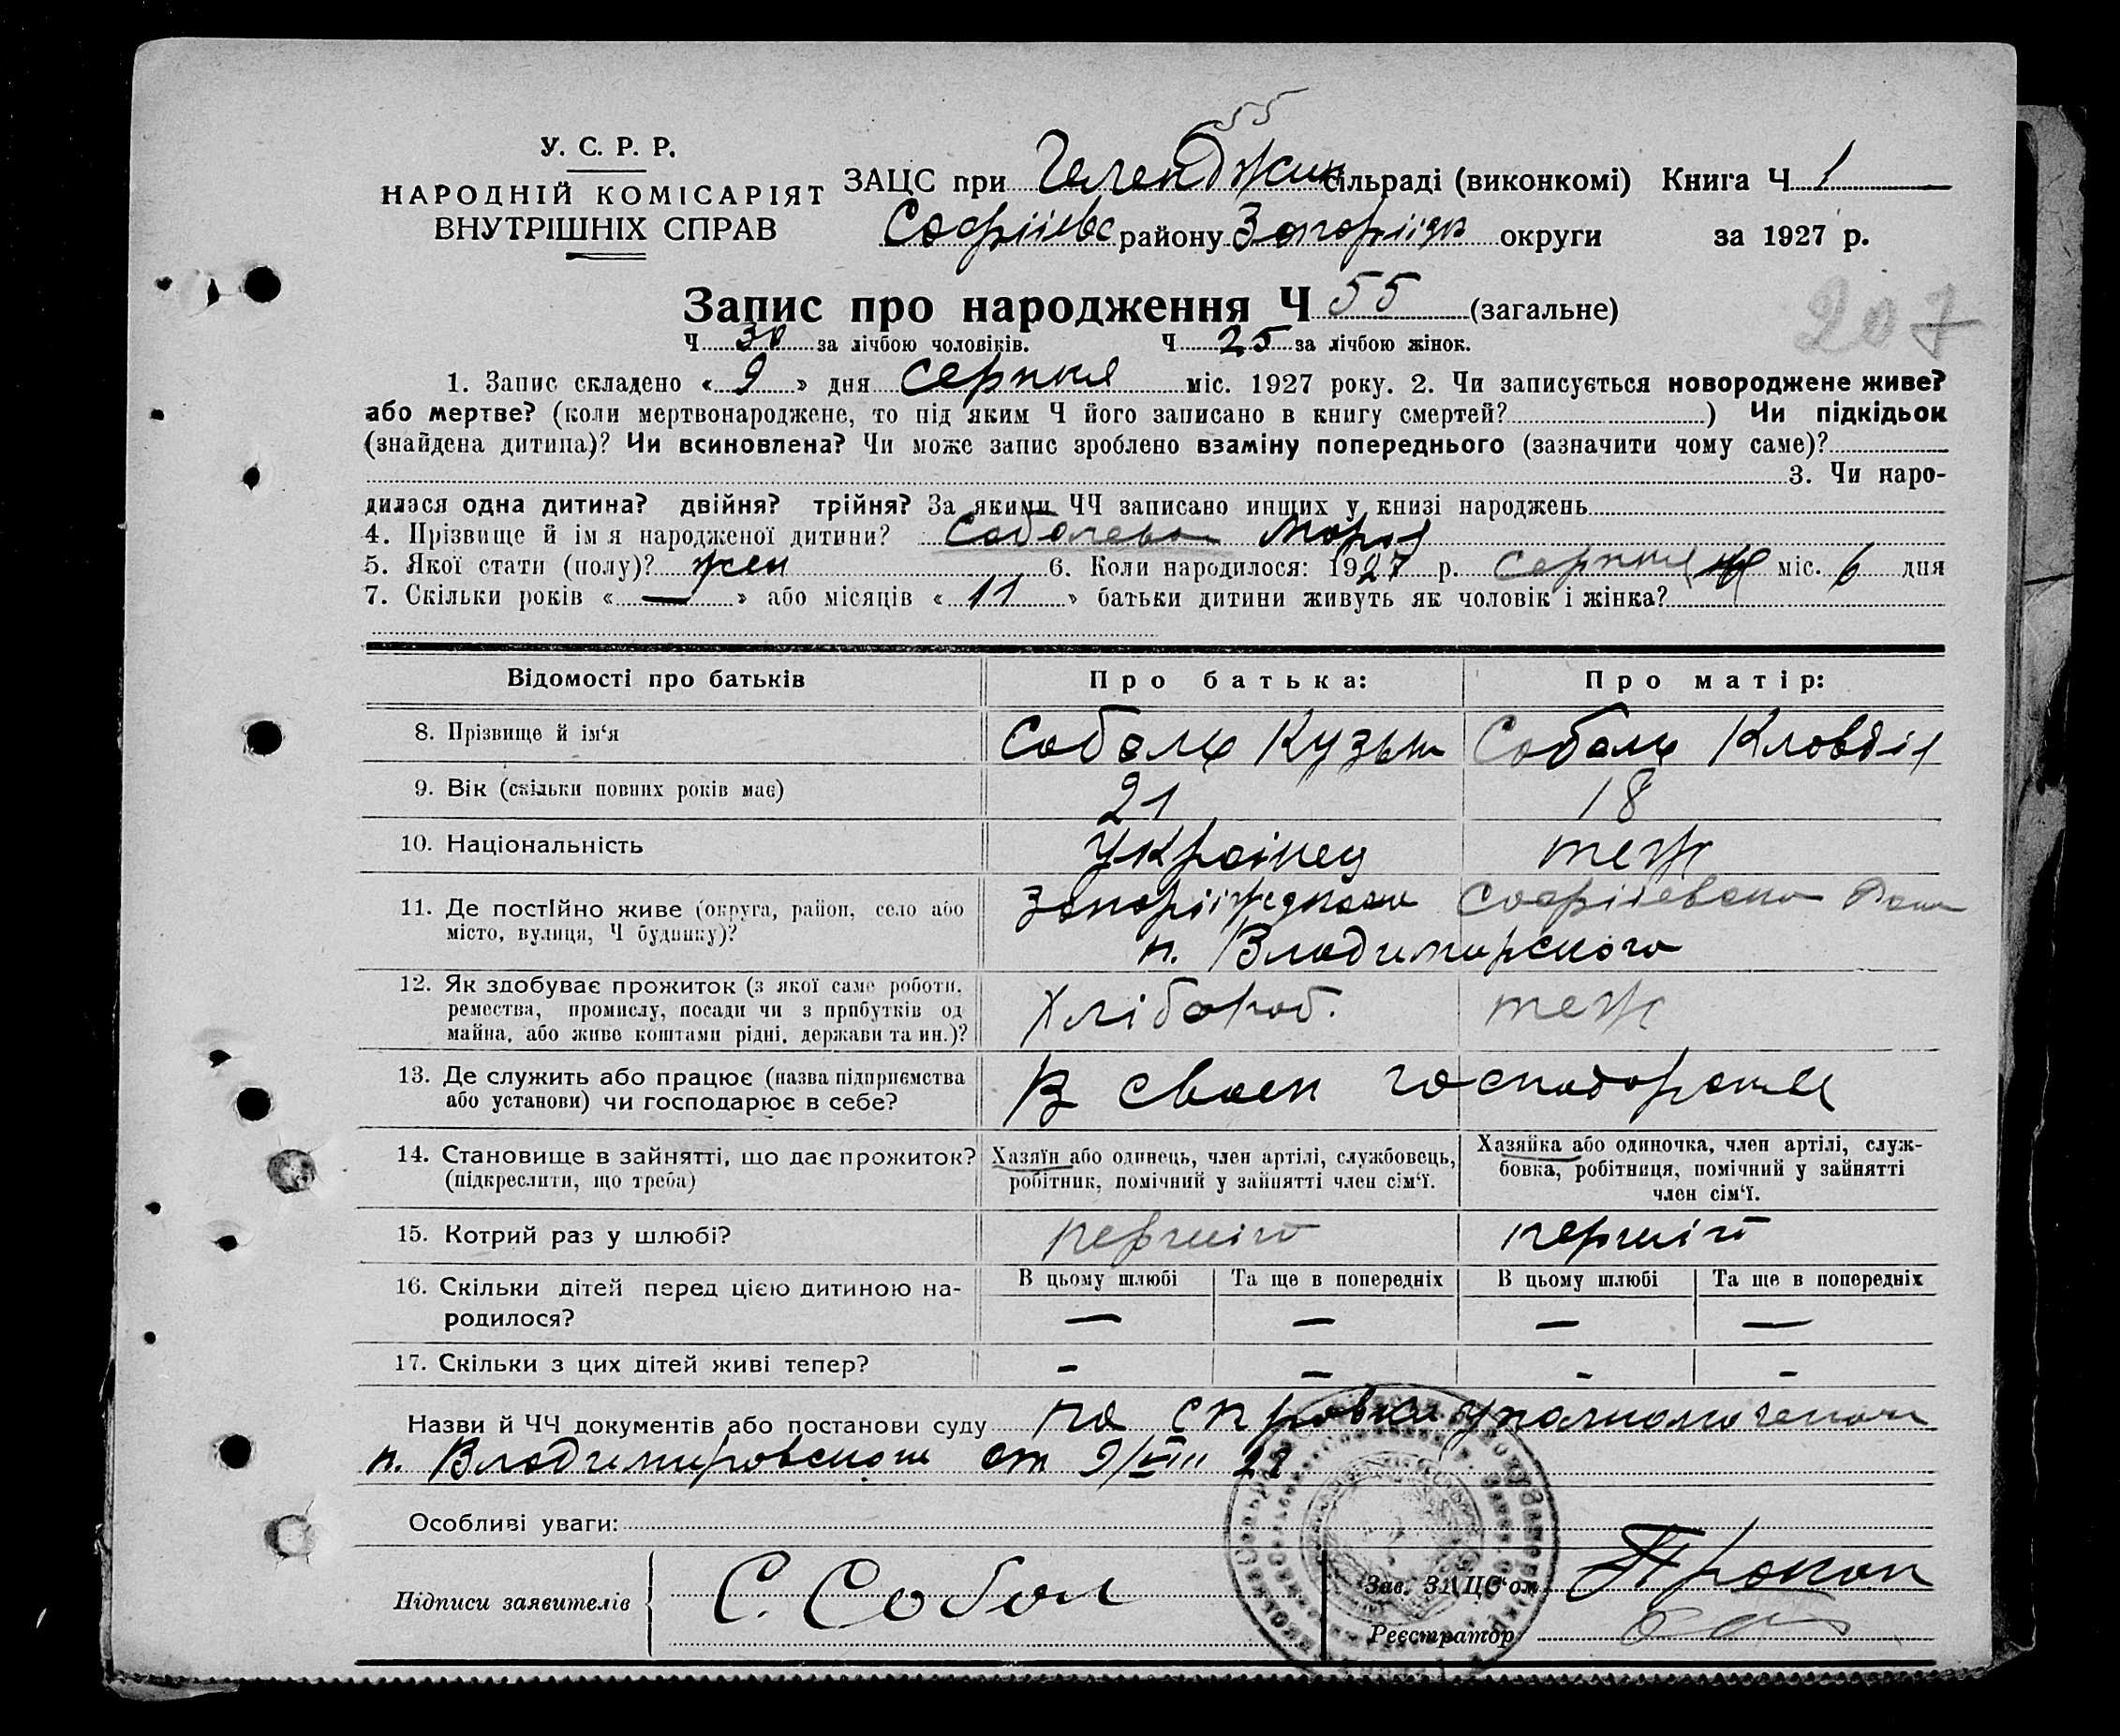 55
У. С. Р. Р.
НАРОДНІЙ КОМІСАРІЯТ
ВНУТРІШНІХ СПРАВ
ЗАЦС при Геленджик сільраді (виконкомі) Книга Ч 1
Софіївс району Запоріізк округи за 1927 р.
Запис про народження Ч 55 (загальне)
207
Ч 30 за лічбою чоловіків. Ч 25 за лічбою жінок.
1. Запис складено « 9 » дня серпня міс. 1927 року. 2. Чи записується новороджене живе?
або мертве? (коли мертвонароджене, то під яким Ч його записано в книгу смертей? ) Чи підкідьок
(знайдена дитина)? Чи всиновлена? Чи може запис зроблено взаміну попереднього (зазначити чому саме)?
3. Чи наро-
дилася одна дитина? двійня? трійня? За якими ЧЧ записано инших у книзі народжень
4. Прізвище й імя народженої дитини? Соболева Марія
5. Якої стати (полу)? жен 6. Коли народилося: 1927 р. серпня міс. 6 дня
7. Скільки років « — » або місяців « 11 » батьки дитини живуть як чоловік і жінка?
Відомості про батьків Про батька: Про матір:
8. Прізвище й ім'я Соболь Кузьма Соболь Кловдія
9. Вік (скільки повних років має) 21 18
10. Національність Українец теж
11. Де постійно живе (округа, район, село або
місто, вулиця, Ч будинку)? Софіїевского Рана
п. Владимирского
12. Як здобуває прожиток (з якої саме роботи,
ремества, промислу, посади чи з прибутків од
майна, або живе коштами рідні, держави та ин.)? Хлібороб. теж
13. Де служить або працює (назва підприємства
або установи) чи господарює в себе? В своем господарстве
14. Становище в зайнятті, що дає прожиток?
(підкреслити, що треба)
Хазяїн або одинець, член артілі, службовець,
робітник, помічний у зайнятті член сім'ї.
Хазяйка або одиночка, член артілі, служ-
бовка, робітниця, помічний у зайнятті
член сім'ї.
15. Котрий раз у шлюбі? перший перший
16. Скільки дітей перед цією дитиною на-
родилося?
В цьому шлюбі Та ще в попередніх В цьому шлюбі Та ще в попередніх
— — — —
17. Скільки з цих дітей живі тепер? - - - -
Назви й ЧЧ документів або постанови суду на справки уполномоченого
п. Владимировского от 9/VIII 27
Особливі уваги:
Підписи заявителів С. Собол
Зав. ЗАЦС'ом
Реєстратор